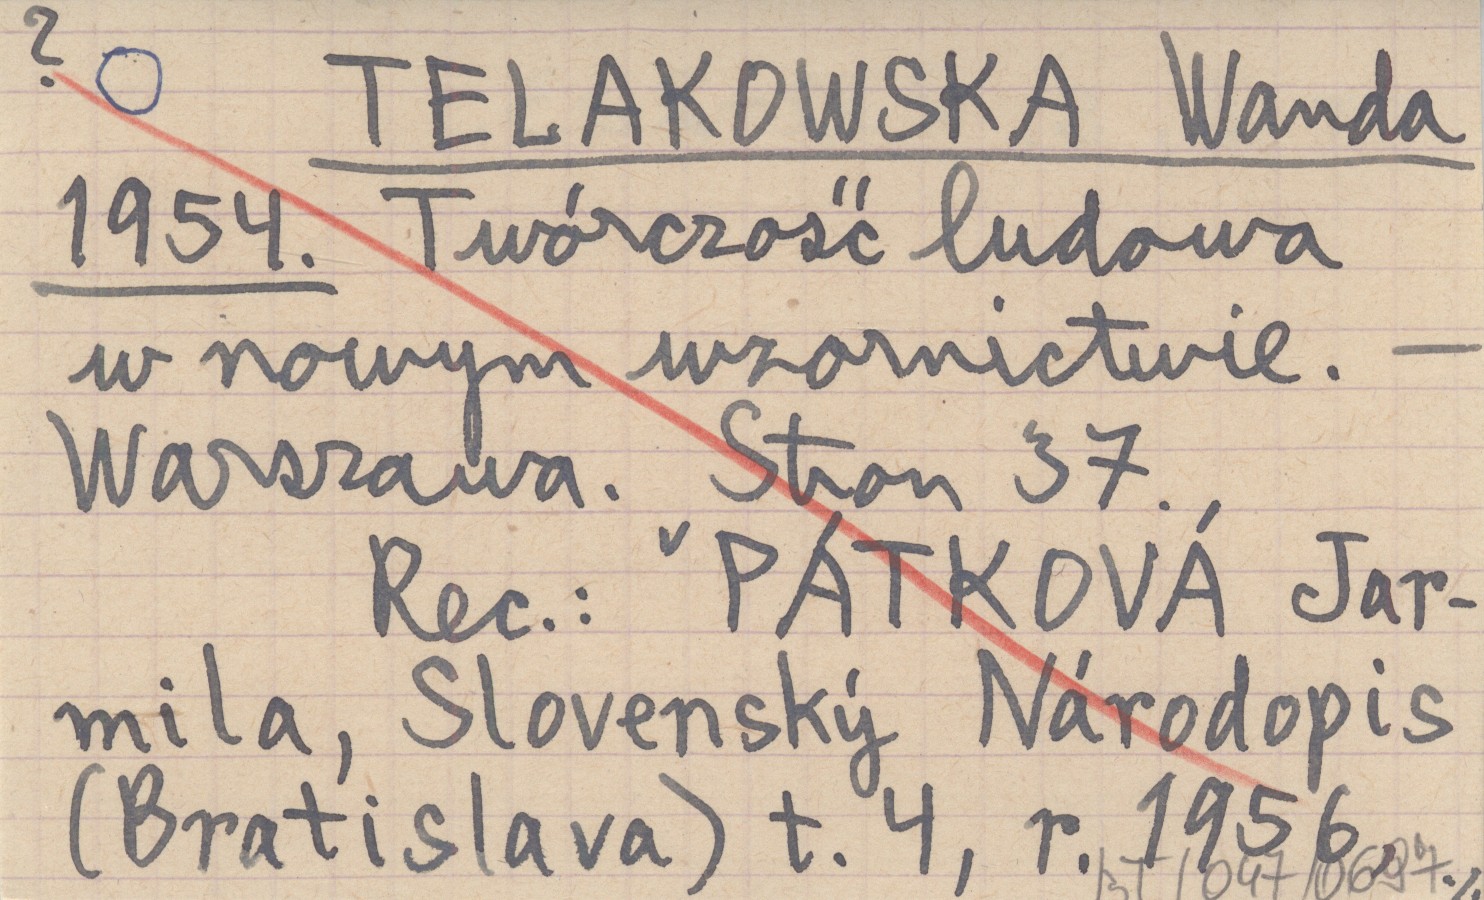 ?
TELAKOWSKA Wanda
1954. Twórczość ludowa
w nowym wzornictwie. —
Warszawa. Stron 37.
Rec.: ˇPÁTKOVÁ Jar-
mila, Slovenský Národopis
(Bratislava) t. 4, r. 1956,